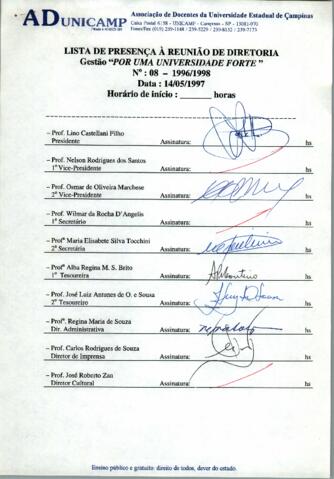 ADUNICAMP
Associação de Docentes da Universidade Estadual de Campinas
Caixa Postal 6158 - UNICAMP - Campinas - SP - 13081-970
LISTA DE PRESENÇA À REUNIÃO DE DIRETORIA
Gestão "POR UMA UNIVERSIDADE FORTE"
Nº : 08 - 1996/1998
Data : 14/05/1997
Horário de início : ______ horas
- Prof. Lino Castellani Filho
Presidente Assinatura: hs
- Prof. Nelson Rodrigues dos Santos
1º Vice-Presidente Assinatura: hs
- Prof. Osmar de Oliveira Marchese
2º Vice-Presidente Assinatura: hs
- Prof. Wilmar da Rocha D'Angelis
1º Secretário Assinatura: hs
- Profª Maria Elisabete Silva Tocchini
2ª Secretária Assinatura: hs
- Profª Alba Regina M. S. Brito
1ª Tesoureira Assinatura: hs
- Prof. José Luiz Antunes de O. e Sousa
2º Tesoureiro Assinatura: hs
- Profª. Regina Maria de Souza
Dir. Administrativa Assinatura: hs
- Prof. Carlos Rodrigues de Souza
Diretor de Imprensa Assinatura: hs
- Prof. José Roberto Zan
Diretor Cultural Assinatura: hs
Ensino público e gratuito: direito de todos, dever do estado.